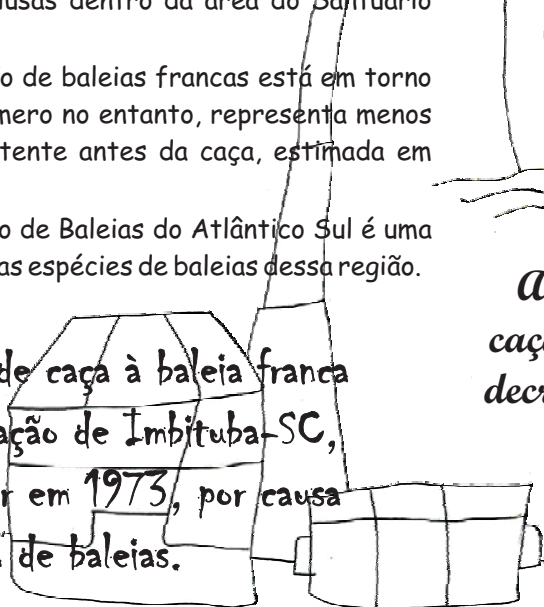 dentro da área do Santuário
o de baleias francas está em torno
no entanto, representa menos
antes da caça, estimada em
o de Baleias do Atlântico Sul é uma
as espécies de baleias dessa região.
de caça à baleia franca
de Imbituba-SC,
r em 1973, por causa
de baleias.